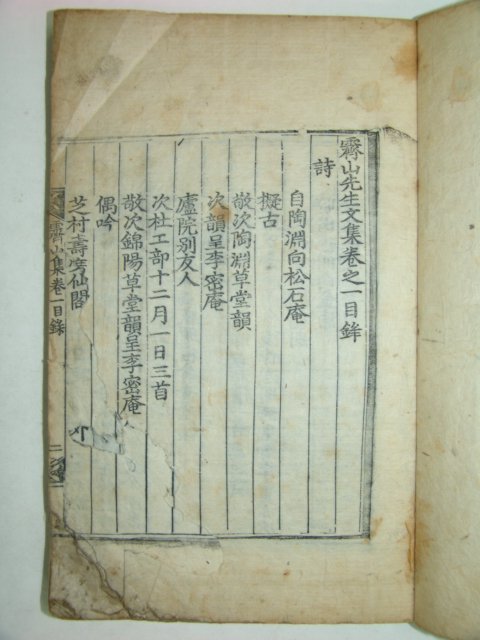 霽山先生文集卷之一目錄
詩
自陶淵向松石庵
擬古
敬次陶淵草堂韻
次韻呈李密庵
廬院別友人
次杜工部十二月一日三首
敬次錦陽草堂韻呈李密庵
偶吟
芝村壽席仙閣
霽山集卷一目錄